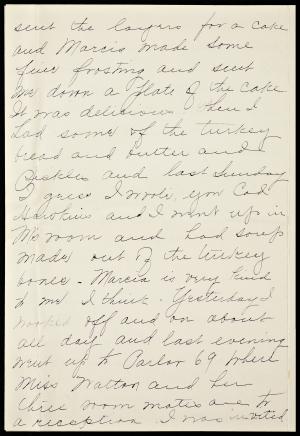 sent the layers for a cake
and Marcia made some
fine frosting and sent
me down a plate of the cake
It was delicious. Then I
had some of the turkey
bread and butter and
pickles and last Sunday
I guess I wrote you
Hawkins and I went up in
M's room and had soup
made out of the turkey
bones - Marcia is very kind
to me I think - Yesterday I
worked off and on about
all day and last evening
went up to Parlor 69 where
Miss Walton and her
three room mates are to
a reception I was invited